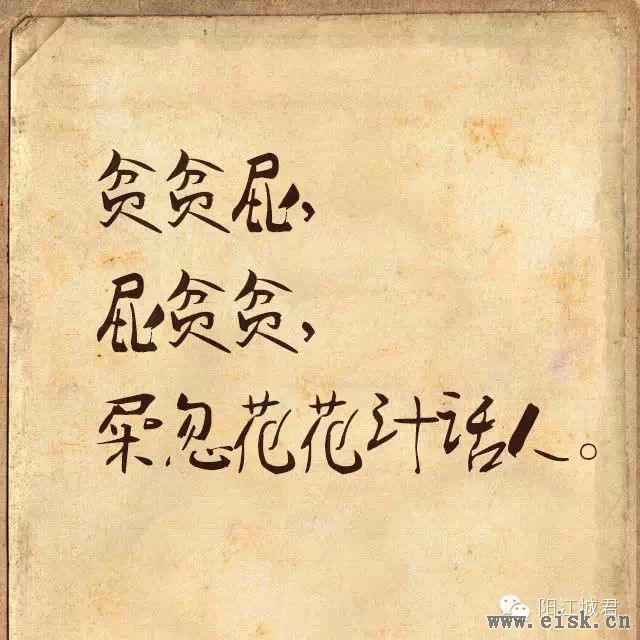 贪贪屁，
屁贪贪，
屎忽花花计话人。
阳江城君
www.eisk.cn